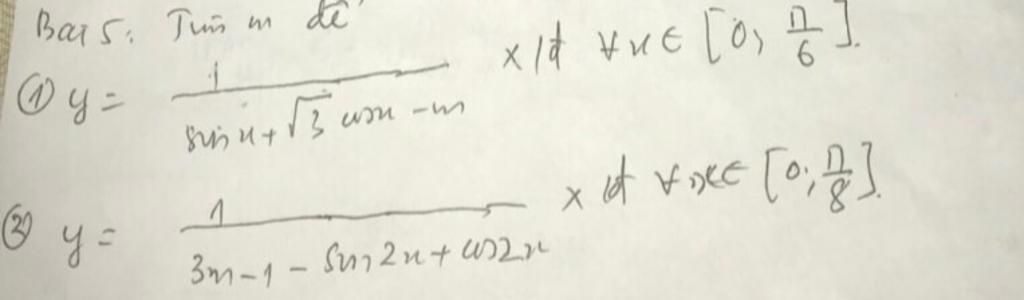 Bài 5: Tìm m để
① y = 1 / (sin x + √3 cos x - m) xđ ∀x ∈ [0; π/6].
② y = 1 / (3m - 1 - sin 2x + cos 2x) xđ ∀x ∈ [0; π/8].